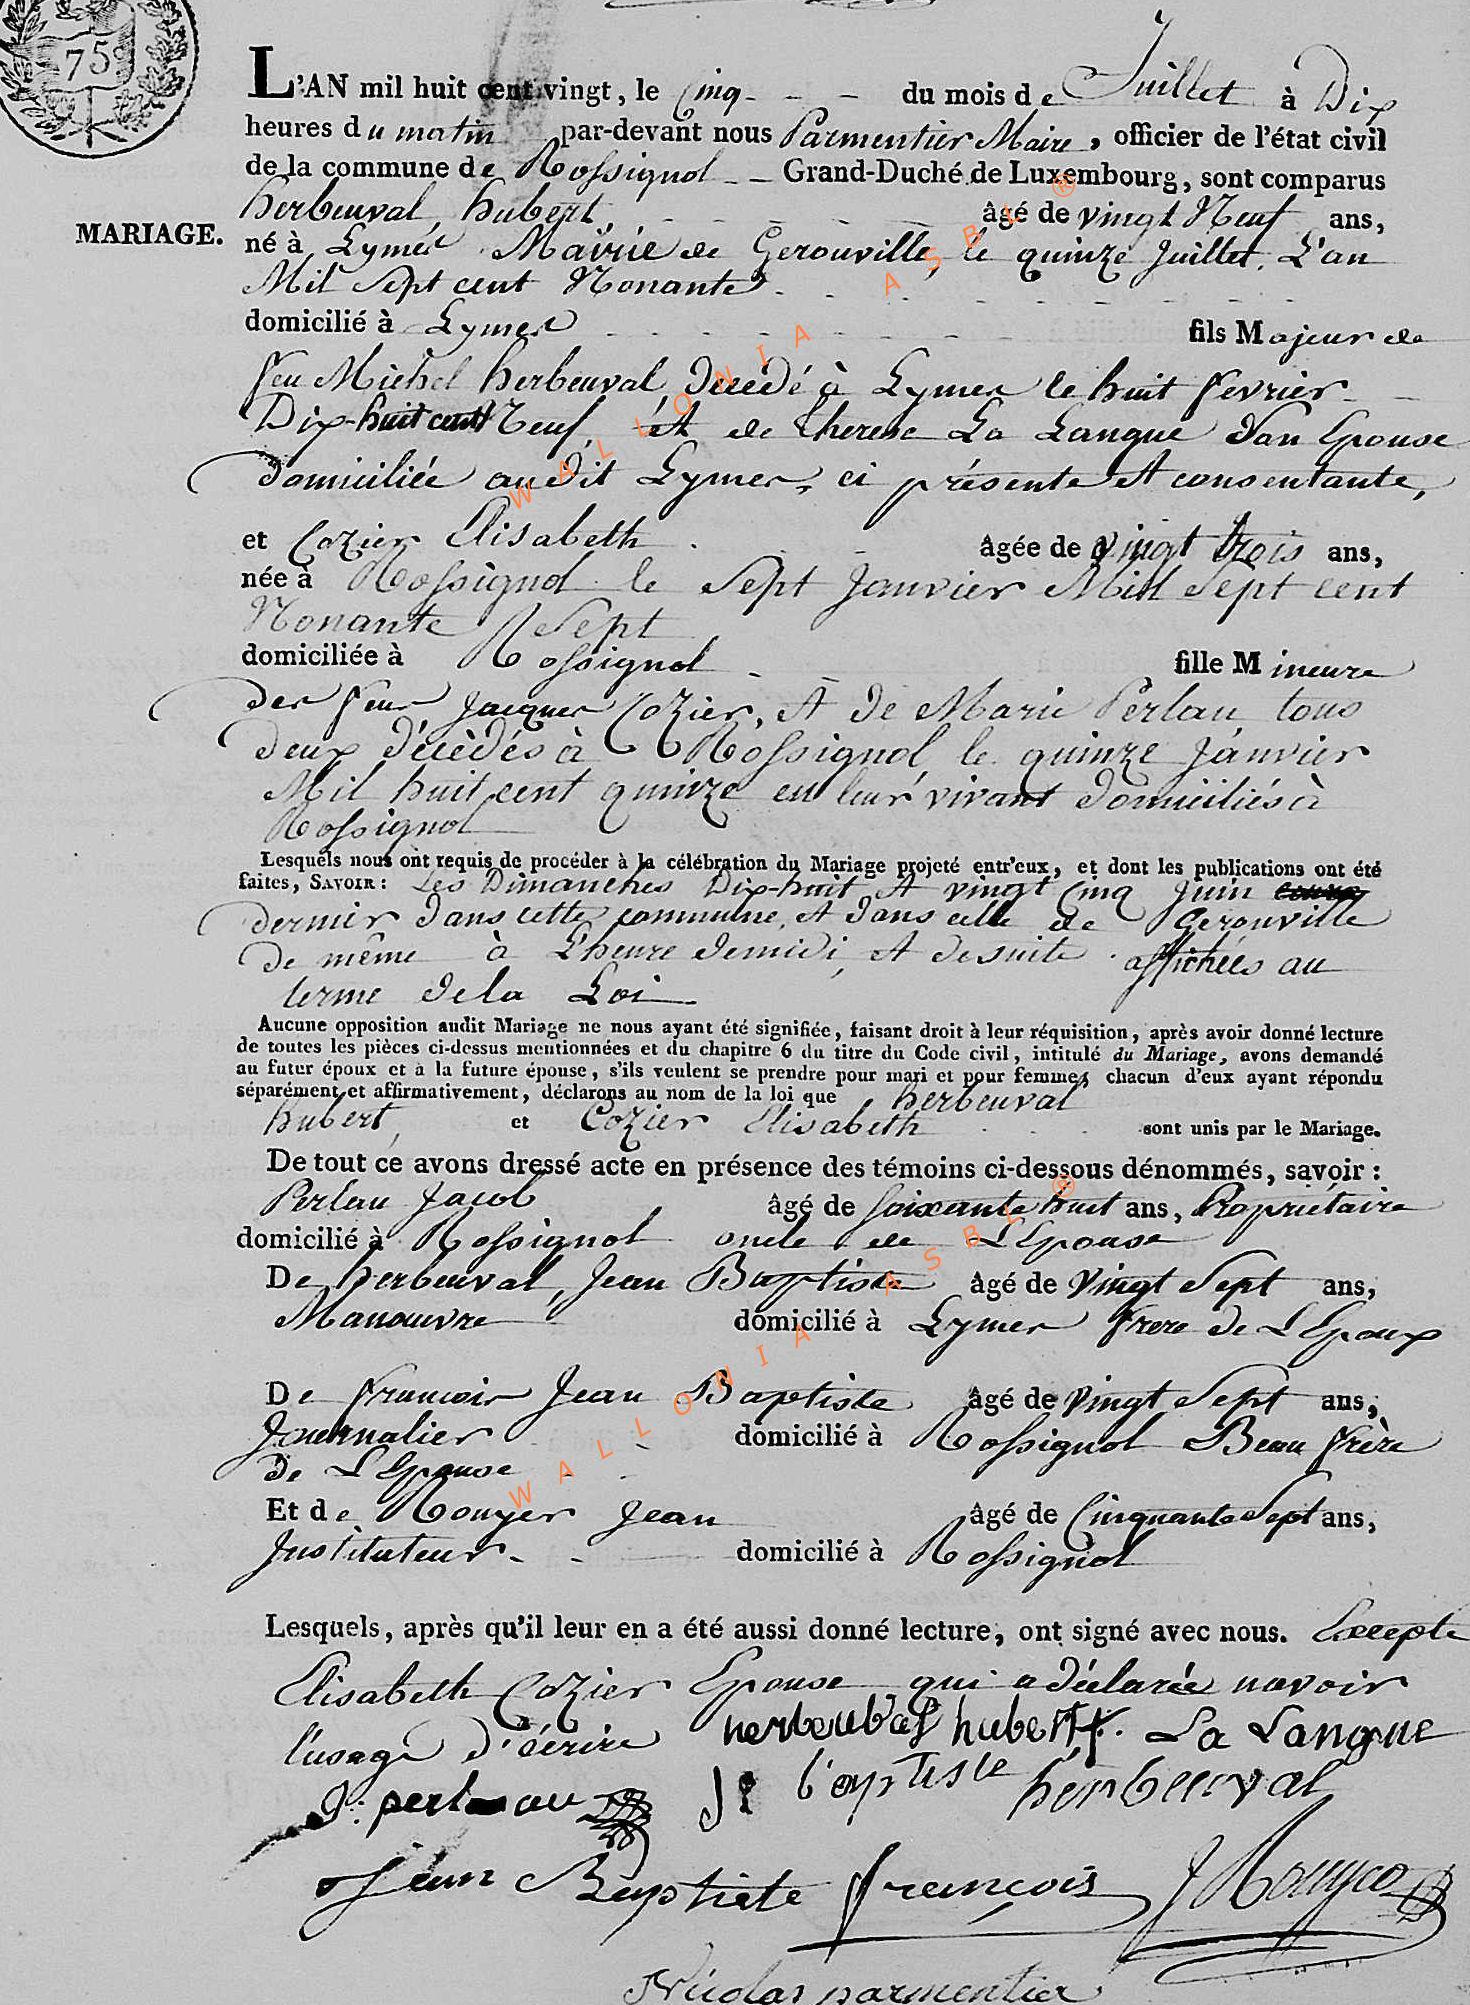 75
L'AN mil huit cent vingt, le Cinq - - - du mois de Juillet à Dix
heures du matin par-devant nous Parmentier Maire, officier de l'état civil
de la commune de Rossignol - - Grand-Duché de Luxembourg, sont comparus
herbeuval, hubert, âgé de vingt Neuf ans,
MARIAGE.
né à Lymes Mairie de Gerouville, le quinze Juillet. L'an
Mil Sept cent Nonante
domicilié à Lymes fils Majeur de
feu Michel herbeuval, Décédé à Lymes le huit fevrier
Dix-huit cent Neuf, et de therese La Langue Son Epouse
Domiciliée au dit Lymes, ci présente et consentante,
et Cozier Elisabeth âgée de vingt trois ans,
née à Rossignol le Sept Janvier Mill Sept cent
Nonante Sept
domiciliée à Rossignol fille Mineure
des feus Jacques Cozier, et de Marie Perlau tous
deux décèdés à Rossignol, le quinze Janvier
Mil huit cent quinze en leur vivant domiciliés à
Rossignol
Lesquels nous ont requis de procéder à la célébration du Mariage projeté entr'eux, et dont les publications ont été
faites, SAVOIR: Les Dimanches Dix-huit et vingt Cinq Juin
dernier dans cette commune, et dans celle de Gerouville
de même à L'heure de midi, et de suite affichées au
terme de la Loi
Aucune opposition audit Mariage ne nous ayant été signifiée, faisant droit à leur réquisition, après avoir donné lecture
de toutes les pièces ci-dessus mentionnées et du chapitre 6 du titre du Code civil, intitulé du Mariage, avons demandé
au futur époux et à la future épouse, s'ils veulent se prendre pour mari et pour femme; chacun d'eux ayant répondu
séparément et affirmativement, déclarons au nom de la loi que herbeuval
hubert, et Cozier Elisabeth sont unis par le Mariage.
De tout ce avons dressé acte en présence des témoins ci-dessous dénommés, savoir:
Perlau Jacob âgé de Soixante huit ans, Propriétaire
domicilié à Rossignol oncle de L'Epouse
De herbeuval, Jean Baptiste âgé de vingt Sept ans,
Manoeuvre domicilié à Lymes frere de L'Epoux
De francois Jean Baptiste âgé de vingt Sept ans,
Journalier domicilié à Rossignol Beau frère
de L'Epouse
Et de Rouyer Jean âgé de Cinquante Sept ans,
Instituteur - - domicilié à Rossignol
Lesquels, après qu'il leur en a été aussi donné lecture, ont signé avec nous. Excepte
Elisabeth Cozier Epouse qui a déclarée navoir
l'usage d'écrire herbeuval hubert. La Langue
J: perlau J. baptiste herbeuval
Jean Baptiste françois J Rouyer
Nicolas parmentier
WALLONIA ASBL ®
WALLONIA ASBL ®